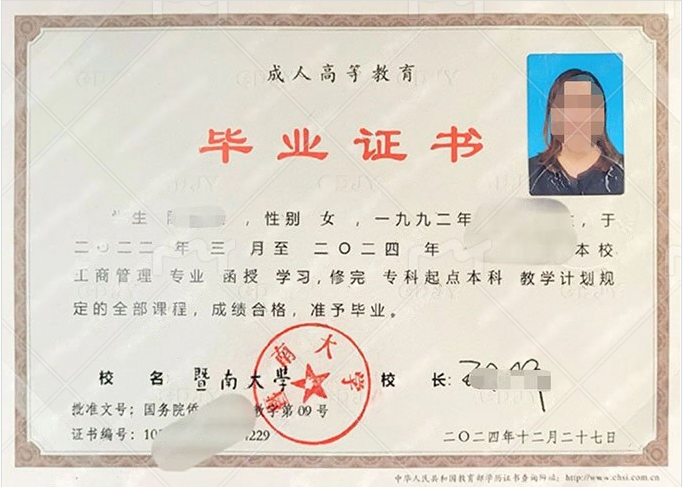 成人高等教育
毕业证书
学生 ，性别 女 ，一九九二年 ，于
二〇二二 年 三 月至 二〇二四 年 本校
工商管理 专业 函授 学习，修完 专科起点本科 教学计划规
定的全部课程，成绩合格，准予毕业。
校 名 暨南大學 校 长：
批准文号：国务院侨 教学第 09 号
证书编号：10 229
二〇二四年十二月二十七日
暨南大学
中华人民共和国教育部学历证书查询网址：http://www.chsi.com.cn